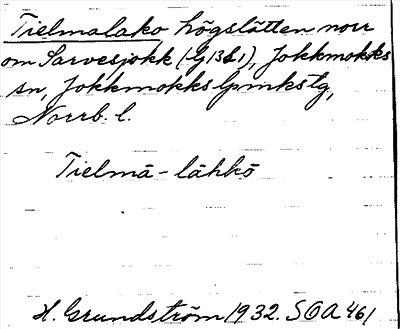 Tielmalako högslätten norr
om Sarvesjokk (G13b1), Jokkmokks
sn, Jokkmokks lpmkstg,
Norrb. l.
Tielmā-lāhkō
H. Grundström 1932. SOA 461